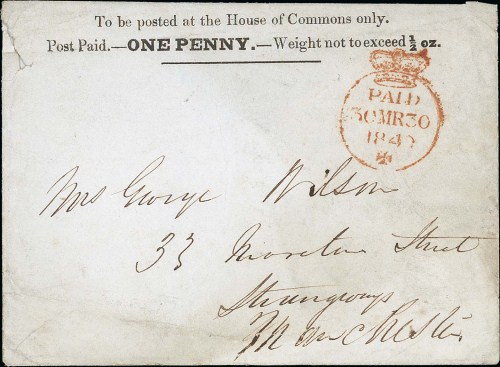 To be posted at the House of Commons only.
Post Paid.—ONE PENNY.—Weight not to exceed ½ oz.
PAID
30MR30
1840
Mrs George Wilson
33 Moreton Street
Strangways
Manchester